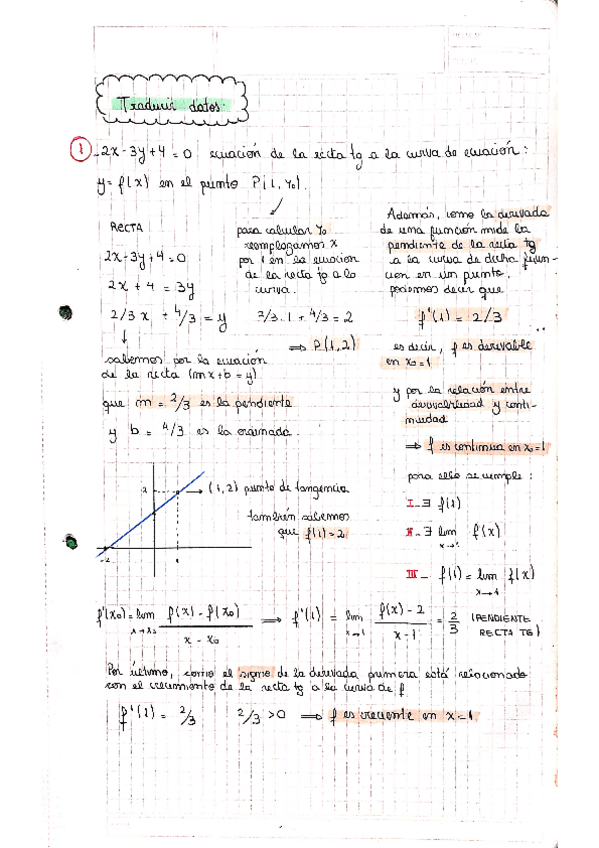 Traducir datos.
1 - 2x - 3y + 4 = 0 ecuación de la recta tg a la curva de ecuación:
y = f(x) en el punto P(1, y₀).
RECTA
2x - 3y + 4 = 0
2x + 4 = 3y
2/3 x + 4/3 = y
↓
sabemos por la ecuación
de la recta (mx + b = y)
que m = 2/3 es la pendiente
y b = 4/3 es la ordenada.
para calcular y₀
reemplazamos x
por 1 en la ecuación
de la recta tg a la
curva.
2/3 . 1 + 4/3 = 2
⇒ P(1, 2)
Además, como la derivada
de una función mide la
pendiente de la recta tg
a la curva de dicha fun-
ción en un punto.
podemos decir que
f'(1) = 2/3
es decir, f es derivable
en x₀ = 1
y por la relación entre
derivabilidad y conti-
nuidad
⇒ f es continua en x₀ = 1
para ello se cumple:
I - ∃ f(1)
II - ∃ lim f(x)
x→1
III - f(1) = lim f(x)
x→1
2
→ (1, 2) punto de tangencia
-2
1
también sabemos
que f(1) = 2
f'(x₀) = lim x→x₀ (f(x) - f(x₀)) / (x - x₀) ⇒ f'(1) = lim x→1 (f(x) - 2) / (x - 1) = 2/3 (PENDIENTE RECTA TG)
Por último, como el signo de la derivada primera está relacionado
con el crecimiento de la recta tg a la curva de f
f'(1) = 2/3 2/3 > 0 ⇒ f es creciente en x = 1